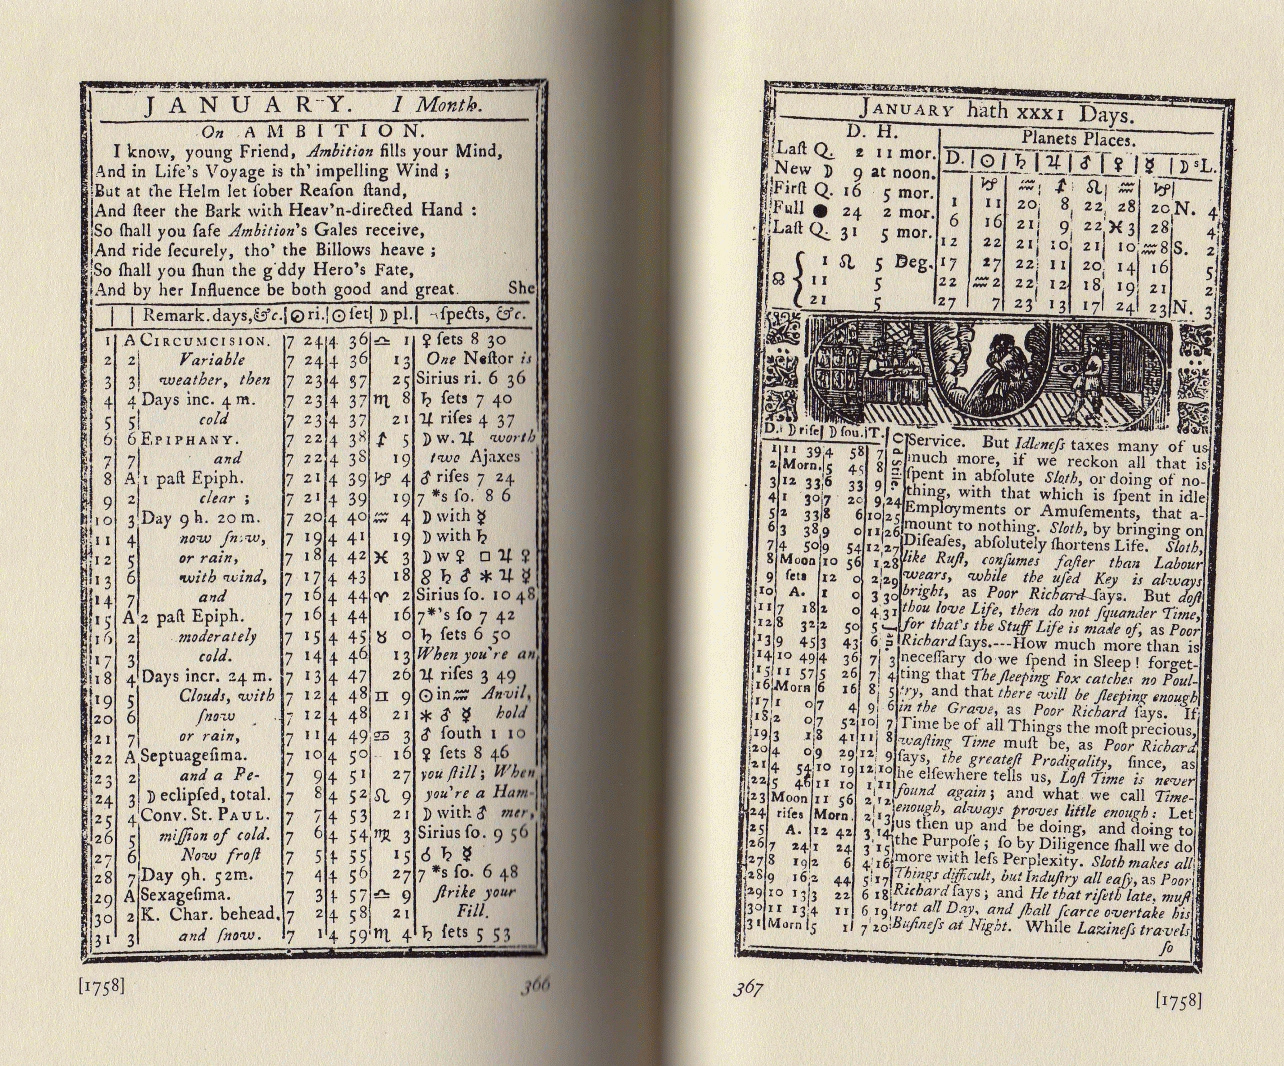 JANUARY. I Month.
On AMBITION.
I know, young Friend, Ambition fills your Mind,
And in Life's Voyage is th' impelling Wind ;
But at the Helm let ſober Reaſon ſtand,
And ſteer the Bark with Heav'n-directed Hand :
So ſhall you ſafe Ambition's Gales receive,
And ride ſecurely, tho' the Billows heave ;
So ſhall you ſhun the giddy Hero's Fate,
And by her Influence be both good and great. She
Remark. days, &c. ☉ ri. ☉ ſet ☽ pl. ſpects, &c.
1 A CIRCUMCISION. 7 24 4 36 ♎ 1 ♀ ſets 8 30
2 2 Variable 7 24 4 36 13 One Neſtor is
3 3 weather, then 7 23 4 37 25 Sirius ri. 6 36
4 4 Days inc. 4 m. 7 23 4 37 ♏ 8 ♄ ſets 7 40
5 5 cold 7 23 4 37 21 ♃ riſes 4 37
6 6 EPIPHANY. 7 22 4 38 ♐ 5 ☽ w. ♃ worth
7 7 and 7 22 4 38 19 two Ajaxes
8 A 1 paſt Epiph. 7 21 4 39 ♑ 4 ♂ riſes 7 24
9 2 clear ; 7 21 4 39 19 7 *s ſo. 8 6
10 3 Day 9 h. 20 m. 7 20 4 40 ♒ 4 ☽ with ☿
11 4 now ſnow, 7 19 4 41 19 ☽ with ♄
12 5 or rain, 7 18 4 42 ♓ 3 ☽ w ♀ □ ♃ ♀
13 6 with wind, 7 17 4 43 18 ☍ ♄ ♂ * ♃ ☿
14 7 and 7 16 4 44 ♈ 2 Sirius ſo. 10 48
15 A 2 paſt Epiph. 7 16 4 44 16 7*'s ſo 7 42
16 2 moderately 7 15 4 45 ♉ 0 ♄ ſets 6 50
17 3 cold. 7 14 4 46 13 When you're an
18 4 Days incr. 24 m. 7 13 4 47 26 ♃ riſes 3 49
19 5 Clouds, with 7 12 4 48 ♊ 9 ☉ in ♒ Anvil,
20 6 ſnow 7 12 4 48 21 * ♂ ☿ hold
21 7 or rain, 7 11 4 49 ♋ 3 ♂ ſouth 1 10
22 A Septuageſima. 7 10 4 50 16 ♀ ſets 8 46
23 2 and a Pe- 7 9 4 51 27 you ſtill ; When
24 3 ☽ eclipſed, total. 7 8 4 52 ♌ 9 you're a Ham-
25 4 Conv. St. PAUL. 7 7 4 53 21 ☽ with ♂ mer,
26 5 miſſion of cold. 7 6 4 54 ♍ 3 Sirius ſo. 9 56
27 6 Now froſt 7 5 4 55 15 ☌ ♄ ☿
28 7 Day 9h. 52m. 7 4 4 56 27 7 *s ſo. 6 48
29 A Sexageſima. 7 3 4 57 ♎ 9 ſtrike your
30 2 K. Char. behead. 7 2 4 58 21 Fill.
31 3 and ſnow. 7 1 4 59 ♏ 4 ♄ ſets 5 53
[1758] 366
JANUARY hath XXXI Days.
D. H.
Laſt Q. 2 11 mor.
New ☽ 9 at noon.
Firſt Q. 16 5 mor.
Full ● 24 2 mor.
Laſt Q. 31 5 mor.
☊ { 1 ♌ 5 Deg.
11 5
21 5
Planets Places.
D. ☉ ♄ ♃ ♂ ♀ ☿ ☽ sL.
♑ ♒ ♐ ♌ ♒ ♑
1 11 20 8 22 28 20 N. 4
6 16 21 9 22 ♓ 3 28 4
12 22 21 10 21 10 ♒ 8 S. 2
17 27 22 11 20 14 16 5
22 ♒ 2 22 12 18 19 21 2
27 7 23 13 17 24 23 N. 3
D. ☽ riſe ☽ ſou. T.
1 11 39 4 58 7
2 Morn. 5 45 8
3 12 33 6 33 9
4 1 30 7 20 9 24
5 2 33 8 6 10 25
6 3 38 9 0 11 26
7 4 50 9 54 12 27
8 Moon 10 56 1 28
9 ſets 12 0 2 29
10 A. 1 0 3 30
11 7 18 2 0 4 31
12 8 32 2 50 5
13 9 45 3 43 6
14 10 49 4 36 7 3
15 11 57 5 26 7 4
16 Morn 6 16 8 5
17 1 0 7 4 9 6
18 2 0 7 52 10 7
19 3 1 8 41 11 8
20 4 0 9 29 12 9
21 4 54 10 19 12 10
22 5 46 11 10 1 11
23 Moon 11 56 2 12
24 riſes Morn. 2 13
25 A. 12 42 3 14
26 7 24 1 24 3 15
27 8 19 2 6 4 16
28 9 16 2 44 5 17
29 10 13 3 22 6 18
30 11 13 4 11 6 19
31 Morn 5 1 7 20
Service. But Idleneſs taxes many of us
much more, if we reckon all that is
ſpent in abſolute Sloth, or doing of no-
thing, with that which is ſpent in idle
Employments or Amuſements, that a-
mount to nothing. Sloth, by bringing on
Diſeaſes, abſolutely ſhortens Life. Sloth,
like Ruſt, conſumes faſter than Labour
wears, while the uſed Key is always
bright, as Poor Richard ſays. But doſt
thou love Life, then do not ſquander Time,
for that's the Stuff Life is made of, as Poor
Richard ſays.----How much more than is
neceſſary do we ſpend in Sleep ! forget-
ting that The ſleeping Fox catches no Poul-
try, and that there will be ſleeping enough
in the Grave, as Poor Richard ſays. If
Time be of all Things the moſt precious,
waſting Time muſt be, as Poor Richard
ſays, the greateſt Prodigality, ſince, as
he elſewhere tells us, Loſt Time is never
found again ; and what we call Time-
enough, always proves little enough : Let
us then up and be doing, and doing to
the Purpoſe ; ſo by Diligence ſhall we do
more with leſs Perplexity. Sloth makes all
Things difficult, but Induſtry all eaſy, as Poor
Richard ſays ; and He that riſeth late, muſt
trot all Day, and ſhall ſcarce overtake his
Buſineſs at Night. While Lazineſs travels
ſo
367 [1758]